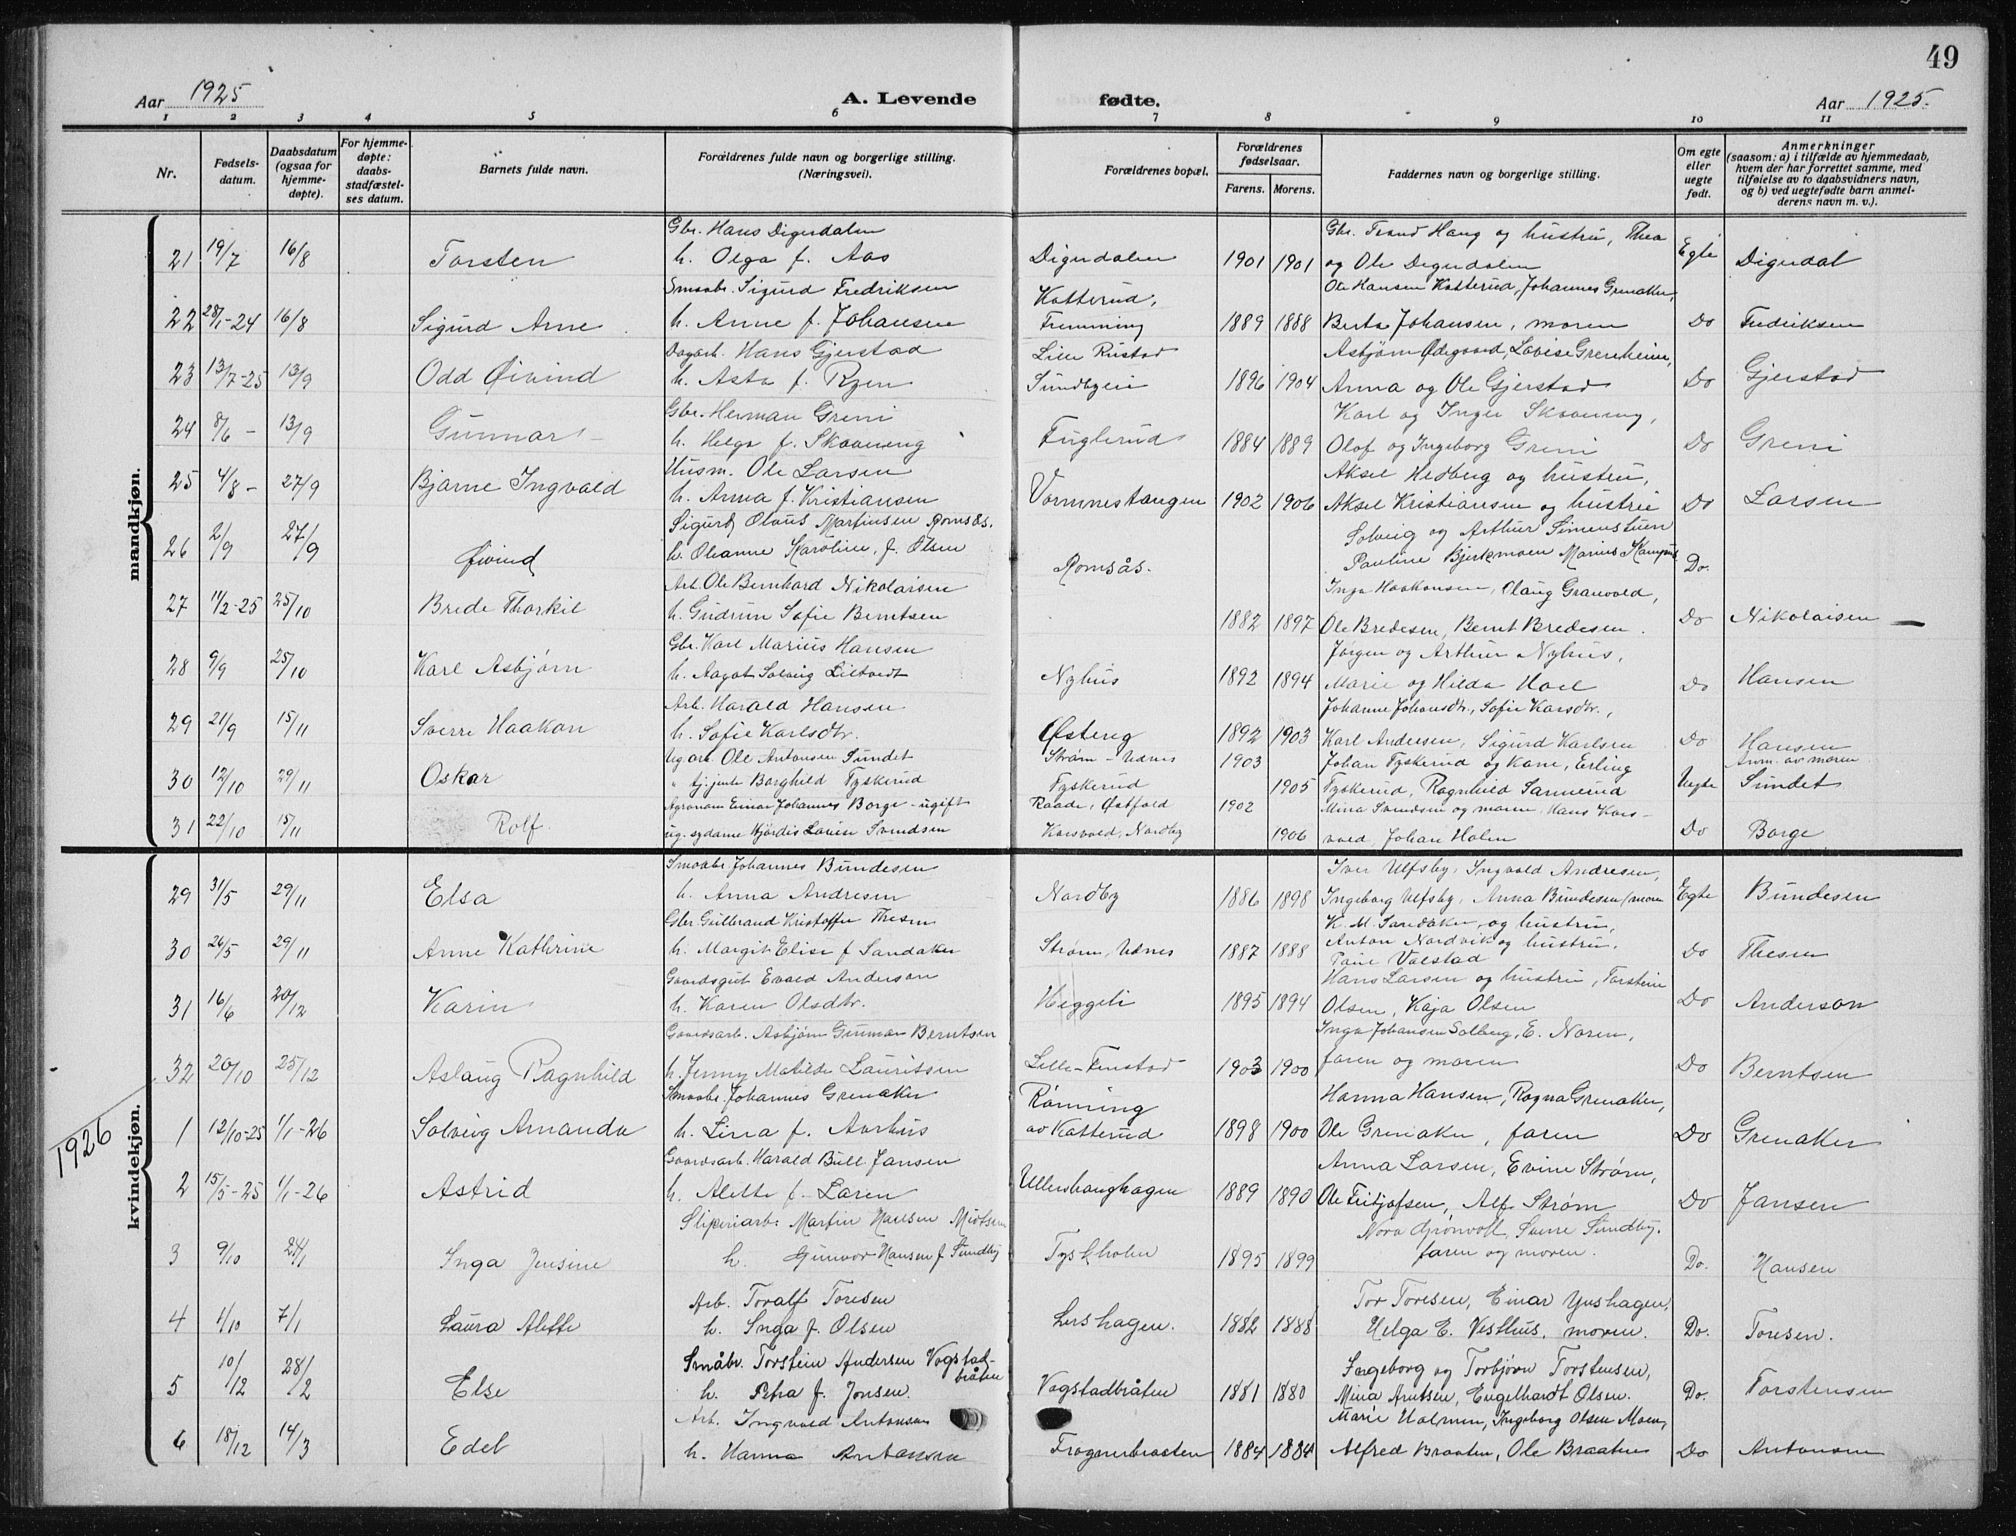 49
Aar 1925
A. Levende fødte.
Aar 1925.
1 2 3 4 5 6 7 8 9 10 11
Nr.
Fødsels-
datum.
Daabsdatum
(ogsaa for
hjemme-
døpte).
For hjemme-
døpte:
daabs-
stadfæstel-
ses datum.
Barnets fulde navn.
Forældrenes fulde navn og borgerlige stilling.
(Næringsvei).
Forældrenes bopæl.
Forældrenes
fødselsaar.
Farens. Morens.
Faddernes navn og borgerlige stilling.
Om egte
eller
uegte
født.
Anmerkninger
(saasom: a) i tilfælde av hjemmedaab,
hvem der har forrettet samme, med
tilføielse av to daabsvidners navn,
og b) ved uegtefødte barn anmel-
derens navn m. v.).
mandkjøn.
Gbr. Hans Digerdalen Gbr. Trond Haug og hustru, Thea
21 19/7 16/8 Torsten h. Olga f. Aas Digerdalen 1901 1901 og Ole Digerdalen Egte Digerdal
Smaabr. Sigurd Fredriksen Katterud, Ole Hansen Katterud, Johannes Grenaker,
22 28/1-24 16/8 Sigurd Arne h. Anne f. Johansen Fremming 1889 1888 Berta Johansen, moren Do Fredriksen
Dagarb. Hans Gjerstad Lille Rustad Asbjørn Ødegaard, Lovise Grenheim,
23 13/7-25 13/9 Odd Øivind h. Asta f. Ryen Sundbyeie 1896 1904 Anna og Ole Gjerstad Do Gjerstad
Gbr. Herman Greni Karl og Inger Skaaning,
24 8/6 - 13/9 Gunnar h. Helga f. Skaaning Fuglerud 1884 1889 Olaf og Ingeborg Greni Do Greni
Husm. Ole Larsen Aksel Hedberg og hustru,
25 4/8 - 27/9 Bjarne Ingvald h. Anna f. Kristiansen Vormnestangen 1902 1906 Aksel Kristiansen og hustru Do Larsen
Sigurd Olaus Martinsen Romsås. Solveig og Arthur Simenstuen
26 2/9 27/9 Øivind h. Oleanne Karoline, f. Olsen Romsås. Pauline Bjerkmoen Marius Kampus Do.
Arb. Ole Bernhard Nikolaisen Inga Haakonsen, Olaug Granvold,
27 11/2-25 25/10 Brede Thorkil h. Gudrun Sofie Berntsen 1882 1897 Ole Bredesen, Bernt Bredesen. Do Nikolaisen
Gbr. Karl Marius Hansen Jørgen og Arthur Nyhus,
28 9/9 25/10 Karl Asbjørn h. Aagot Solveig Lietvedt Nyhus 1892 1894 Marie og Hilda Hoel Do Hansen
Arb. Harald Hansen Johanne Johansdtr., Sofie Karsdtr.,
29 21/9 15/11 Sverre Haakon h. Sofie Karlsdtr. Østereg 1892 1903 Karl Andersen, Sigurd Karlsen Do Hansen
Ug. arb. Ole Antonsen Sundet Strøm - Udnes 1903 Johan Tyskerud og Kone, Erling Anm. av moren
30 12/10 29/11 Oskar " tj.jente Borghild Tyskerud Tyskerud 1905 Tyskerud, Ragnhild Sannerud Uegte Sundet
Agronom Einar Johannes Borge - ugift Raade, Østfold 1902 Mina Svendsen og moren Hans Kors-
31 22/10 15/11 Rolf. ug. sydame Hjørdis Lovise Svendsen Korsvold, Nordby 1906 vold, Johan Holen Do Borge
kvindekjøn.
Smaabr Johannes Bundesen Iver Ulfsby, Ingvald Andresen,
29 31/5 29/11 Elsa h. Anna Andresen Nordby 1886 1898 Ingeborg Ulfsby, Anna Bundesen/moren Egte Bundesen
Gbr Gulbrand Kristoffer Thesen K. M. Sandaker, og hustru,
30 26/5 29/11 Anne Kathrine h. Margit Elise f Sandaker Strøm, Udnes 1887 1888 Anton Nordvik og hustru, Do Thesen
Valstad
Gaardsgut Evald Anderson Hans Larsen og hustru, Torstein
31 16/6 20/12 Karin h. Karen Olsdtr. Heggeli 1895 1894 Olsen, Kaja Olsen Do Anderson
Gaardsarb. Asbjørn Gunnar Berntsen Inga Johansen Solberg, E. Noren,
32 20/10 25/12 Aslaug Ragnhild h. Jenny Matilde Lauritsen Lille-Finstad 1903 1900 faren og moren Do Berntsen
1926
Smaabr. Johannes Grenaker Rønning Hanna Hansen, Ragna Grenaker,
1 12/10-25 1/1-26 Solveig Amanda h. Lina f. Aarhus av Katterud 1898 1900 Ole Grenaker, faren Do Grenaker
Gaardsarb. Harald Bull Jansen Anna Larsen, Evine Strøm,
2 15/5-25 1/1-26 Astrid h. Alette f. Loren Ullershaughagen 1889 1890 Ole Fritjofsen, Alf Strøm Do Jansen
Sliperiarb. Martin Hansen Midtsem Nora Grønvoll, Signe Sundby.
3 9/10 24/1 Inga Jensine h. Gunvor Hansen f. Sundby Tyskholen 1895 1899 faren og moren. Do. Hansen
Arb. Toralf Toresen Tor Toresen, Einar Yushagen,
4 1/10 7/1 Laura Alette h. Inga f. Olsen Lershagen. 1882 1888 Helga E. Vesthus, moren. Do. Toresen.
Småbr. Torstein Andersen Vogstad-
bråten Ingeborg og Torbjørn Torstensen,
5 10/12 28/2 Else h. Petra f. Jonsen. Vogstadbråten 1881 1880 Mina Arntsen, Engelhardt Olsen. Do. Torstensen
Arb. Ingvald Antonsen Marie Holmen, Ingeborg Olsen Moen,
6 18/12 14/3 Edel h. Hanna Antonsen Frognerbraaten 1884 1884 Alfred Braaten, Ole Braaten Do Antonsen